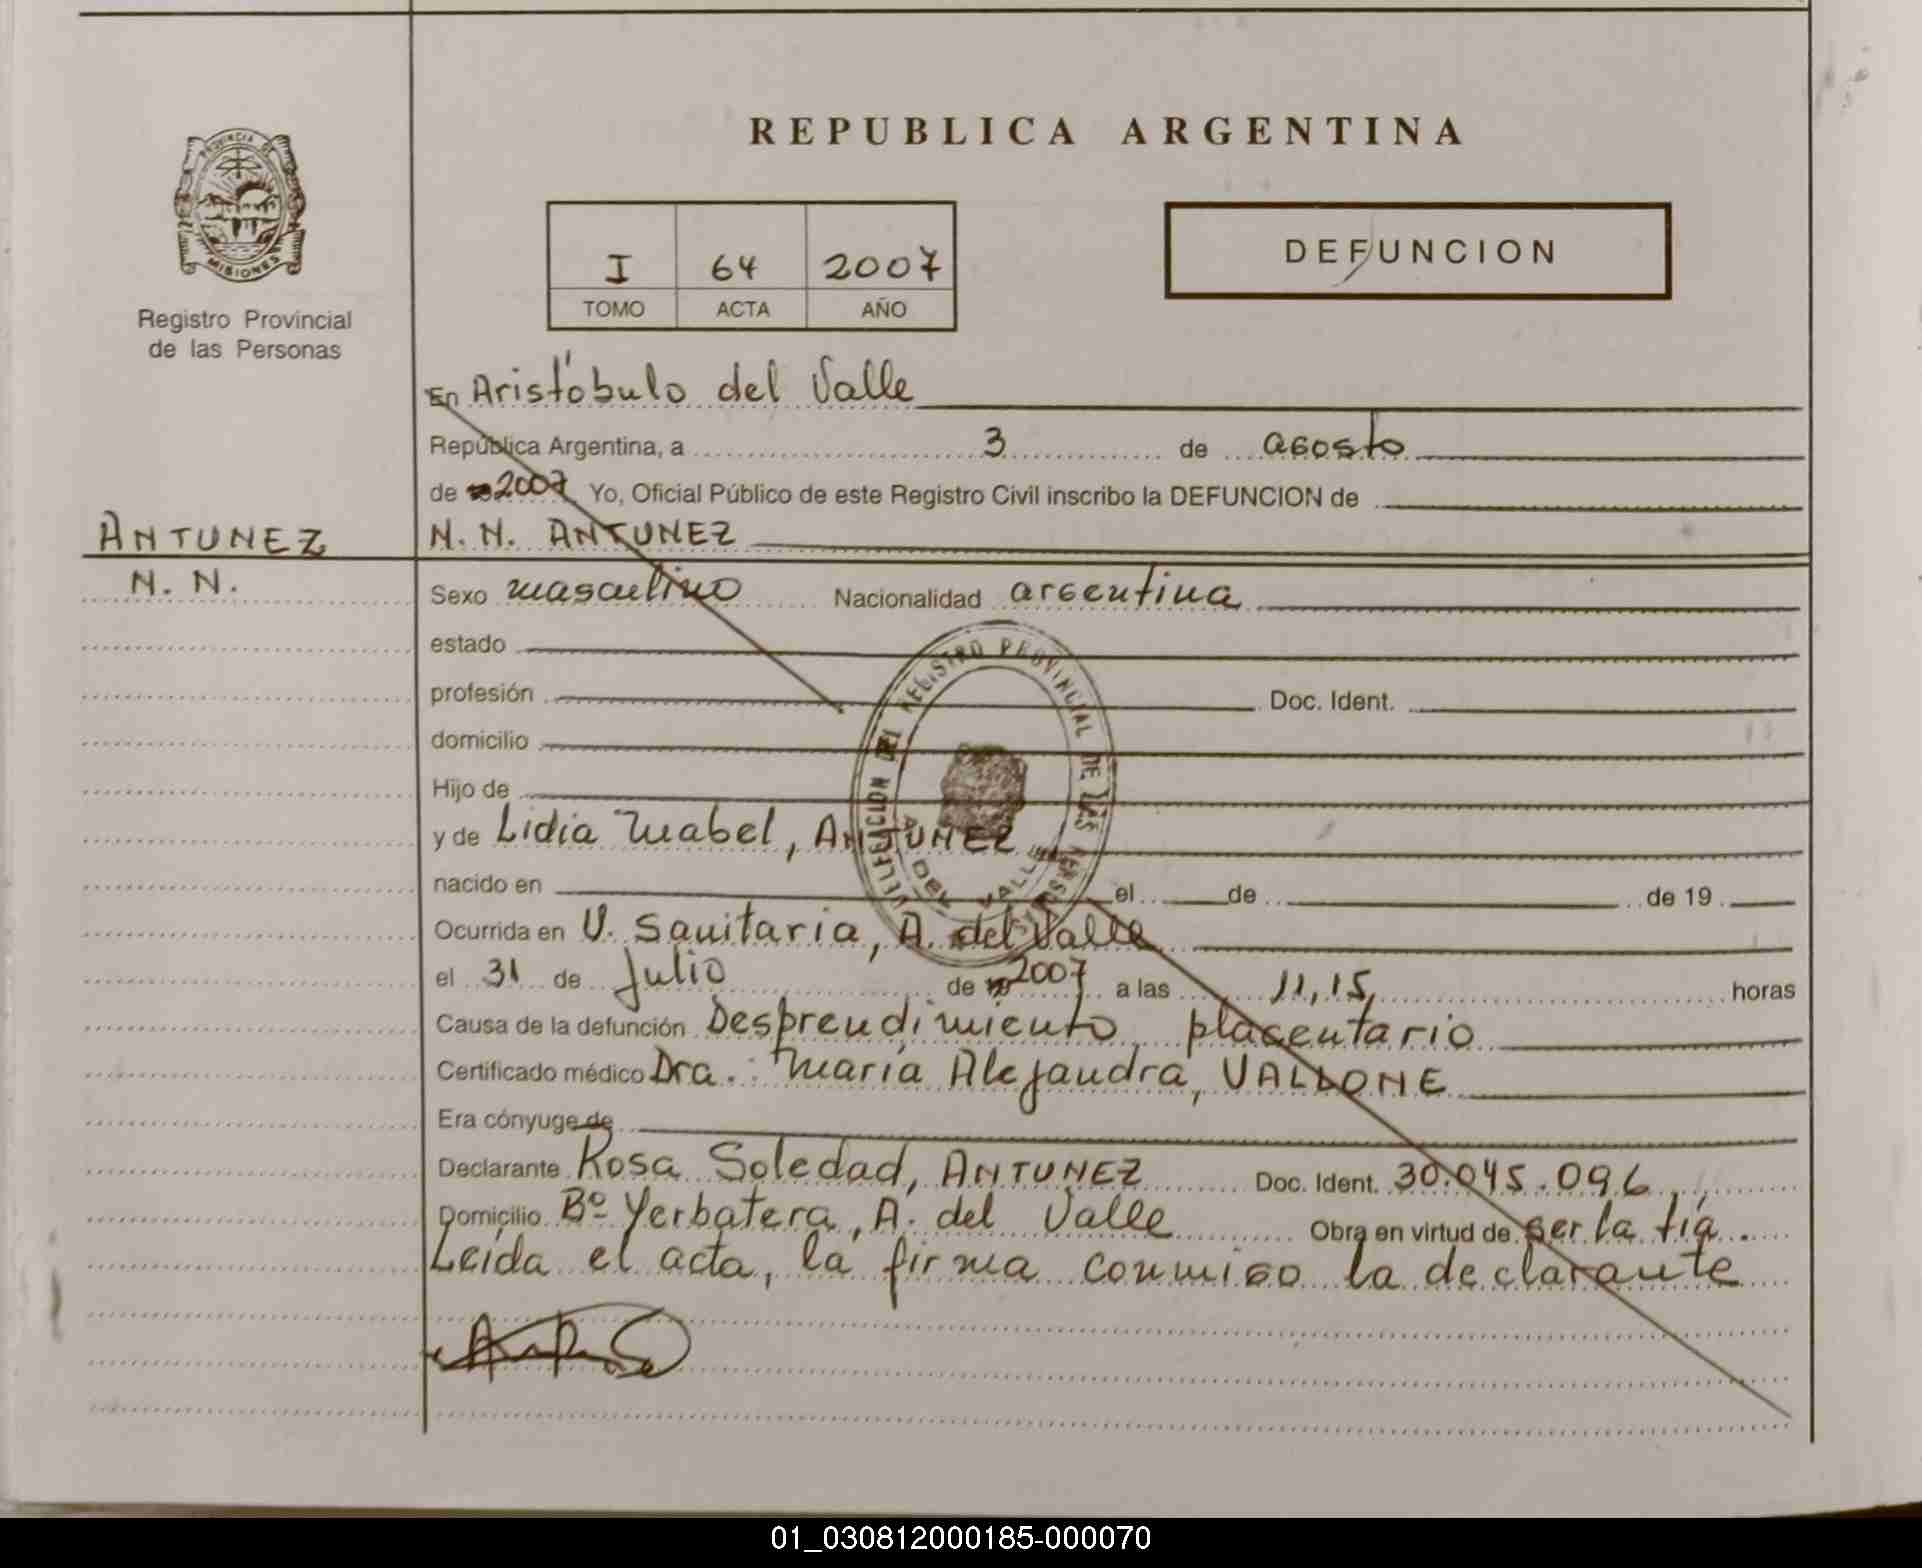 REPUBLICA ARGENTINA
PROVINCIA DE
MISIONES
Registro Provincial
de las Personas
I 64 2007
TOMO ACTA AÑO
DEFUNCION
En Aristóbulo del Valle
República Argentina, a 3 de agosto
de 2007 Yo, Oficial Público de este Registro Civil inscribo la DEFUNCION de
ANTUNEZ
N. N.
N. N. ANTUNEZ
Sexo masculino Nacionalidad argentina
estado
profesión Doc. Ident.
domicilio
Hijo de
y de Lidia Mabel, ANTUNEZ
nacido en el de de 19
Ocurrida en U. Sanitaria, A. del Valle
el 31 de Julio de 2007 a las 11,15 horas
Causa de la defunción Desprendimiento placentario
Certificado médico Dra. : María Alejandra, VALLONE
Era cónyuge de
Declarante Rosa Soledad, ANTUNEZ Doc. Ident. 30.045.096
Domicilio Bº Yerbatera, A. del Valle Obra en virtud de ser la tía.
Leída el acta, la firma conmigo la declarante
DEL REGISTRO PROVINCIAL DE LAS PERSONAS
DEL VALLE
01_030812000185-000070